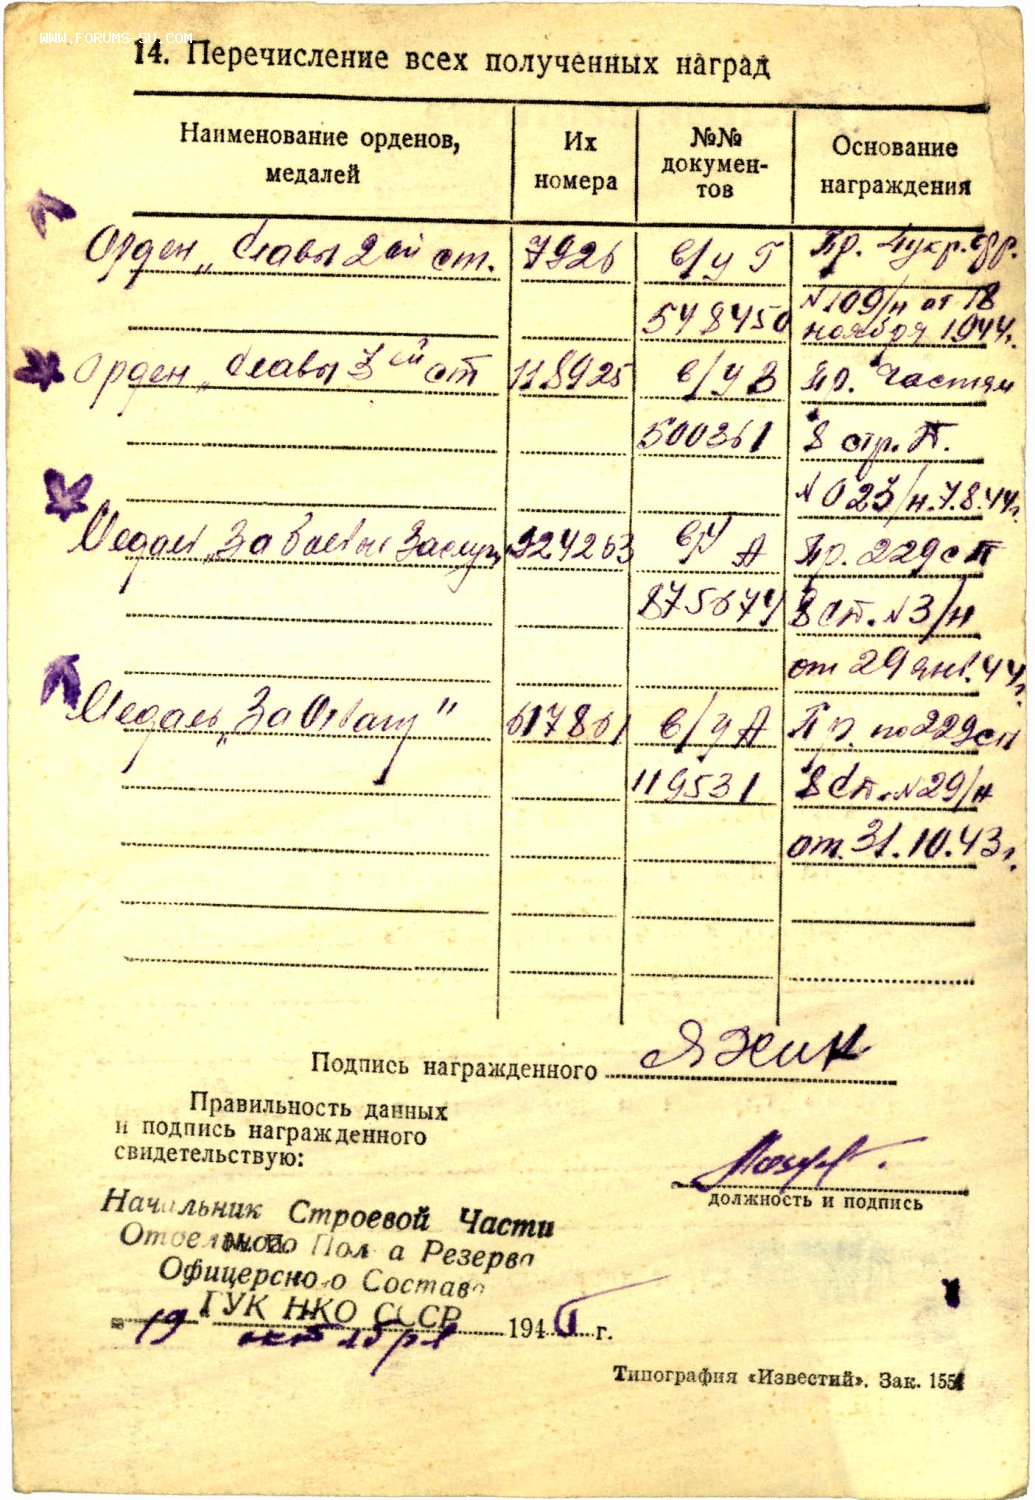 WWW.FORUMS-SU.COM
14. Перечисление всех полученных наград
Наименование орденов, медалей
Их номера
№№ докумен-тов
Основание награждения
Орден „Славы 2ой ст. 7926 в/у Г Пр. 4 укр. фр.
548450 №109/н от 18
ноября 1944г.
Орден „Славы 3ей ст 118925 в/у В Пр. частям
500361 8 стр. П.
№023/н. 7.8.44г.
Медаль „За боевые заслуги" 924263 в/у А Пр. 229 сп
875674 8 сп. №3/н
от 29 янв. 44г.
Медаль „За Отвагу" 617861 в/у А Пр. по 229 сп
119531 8 сп. №29/н
от 31.10.43г.
Подпись награжденного Яжик
Правильность данных
и подпись награжденного
свидетельствую:
должность и подпись
Начальник Строевой Части
Отдельного Полка Резерва
Офицерского Состава
ГУК НКО СССР
19 октября 1945 г.
Типография «Известий». Зак. 1551